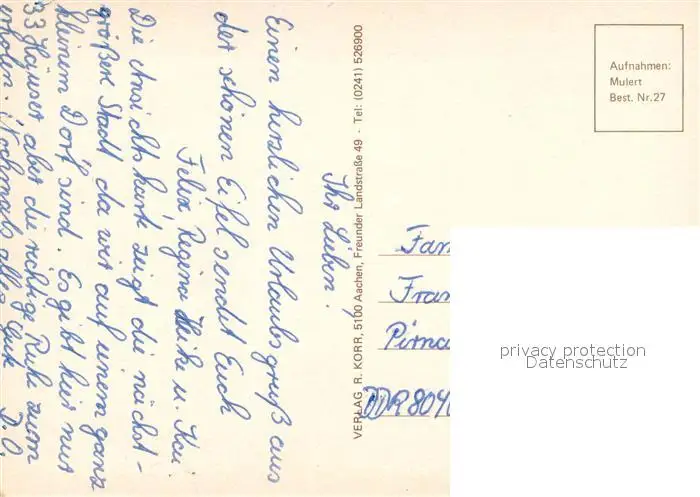 Ihr Lieben!
Einen herzlichen Urlaubsgruß aus
der schönen Eifel sendet Euch
Felix, Regina Heike u. Kai
Die Ansichtskarte zeigt die nächst-
größere Stadt da wir auf einem ganz
kleinem Dorf sind. Es gibt hier nur
33 Häuser aber die richtige Ruhe zum
erholen. Nochmals alles Gute D.O.
VERLAG R. KORR, 5100 Aachen, Freunder Landstraße 49 - Tel: (0241) 526900
Aufnahmen:
Mulert
Best. Nr. 27
Fam
Fran
Pirna
DDR 8040
privacy protection
Datenschutz